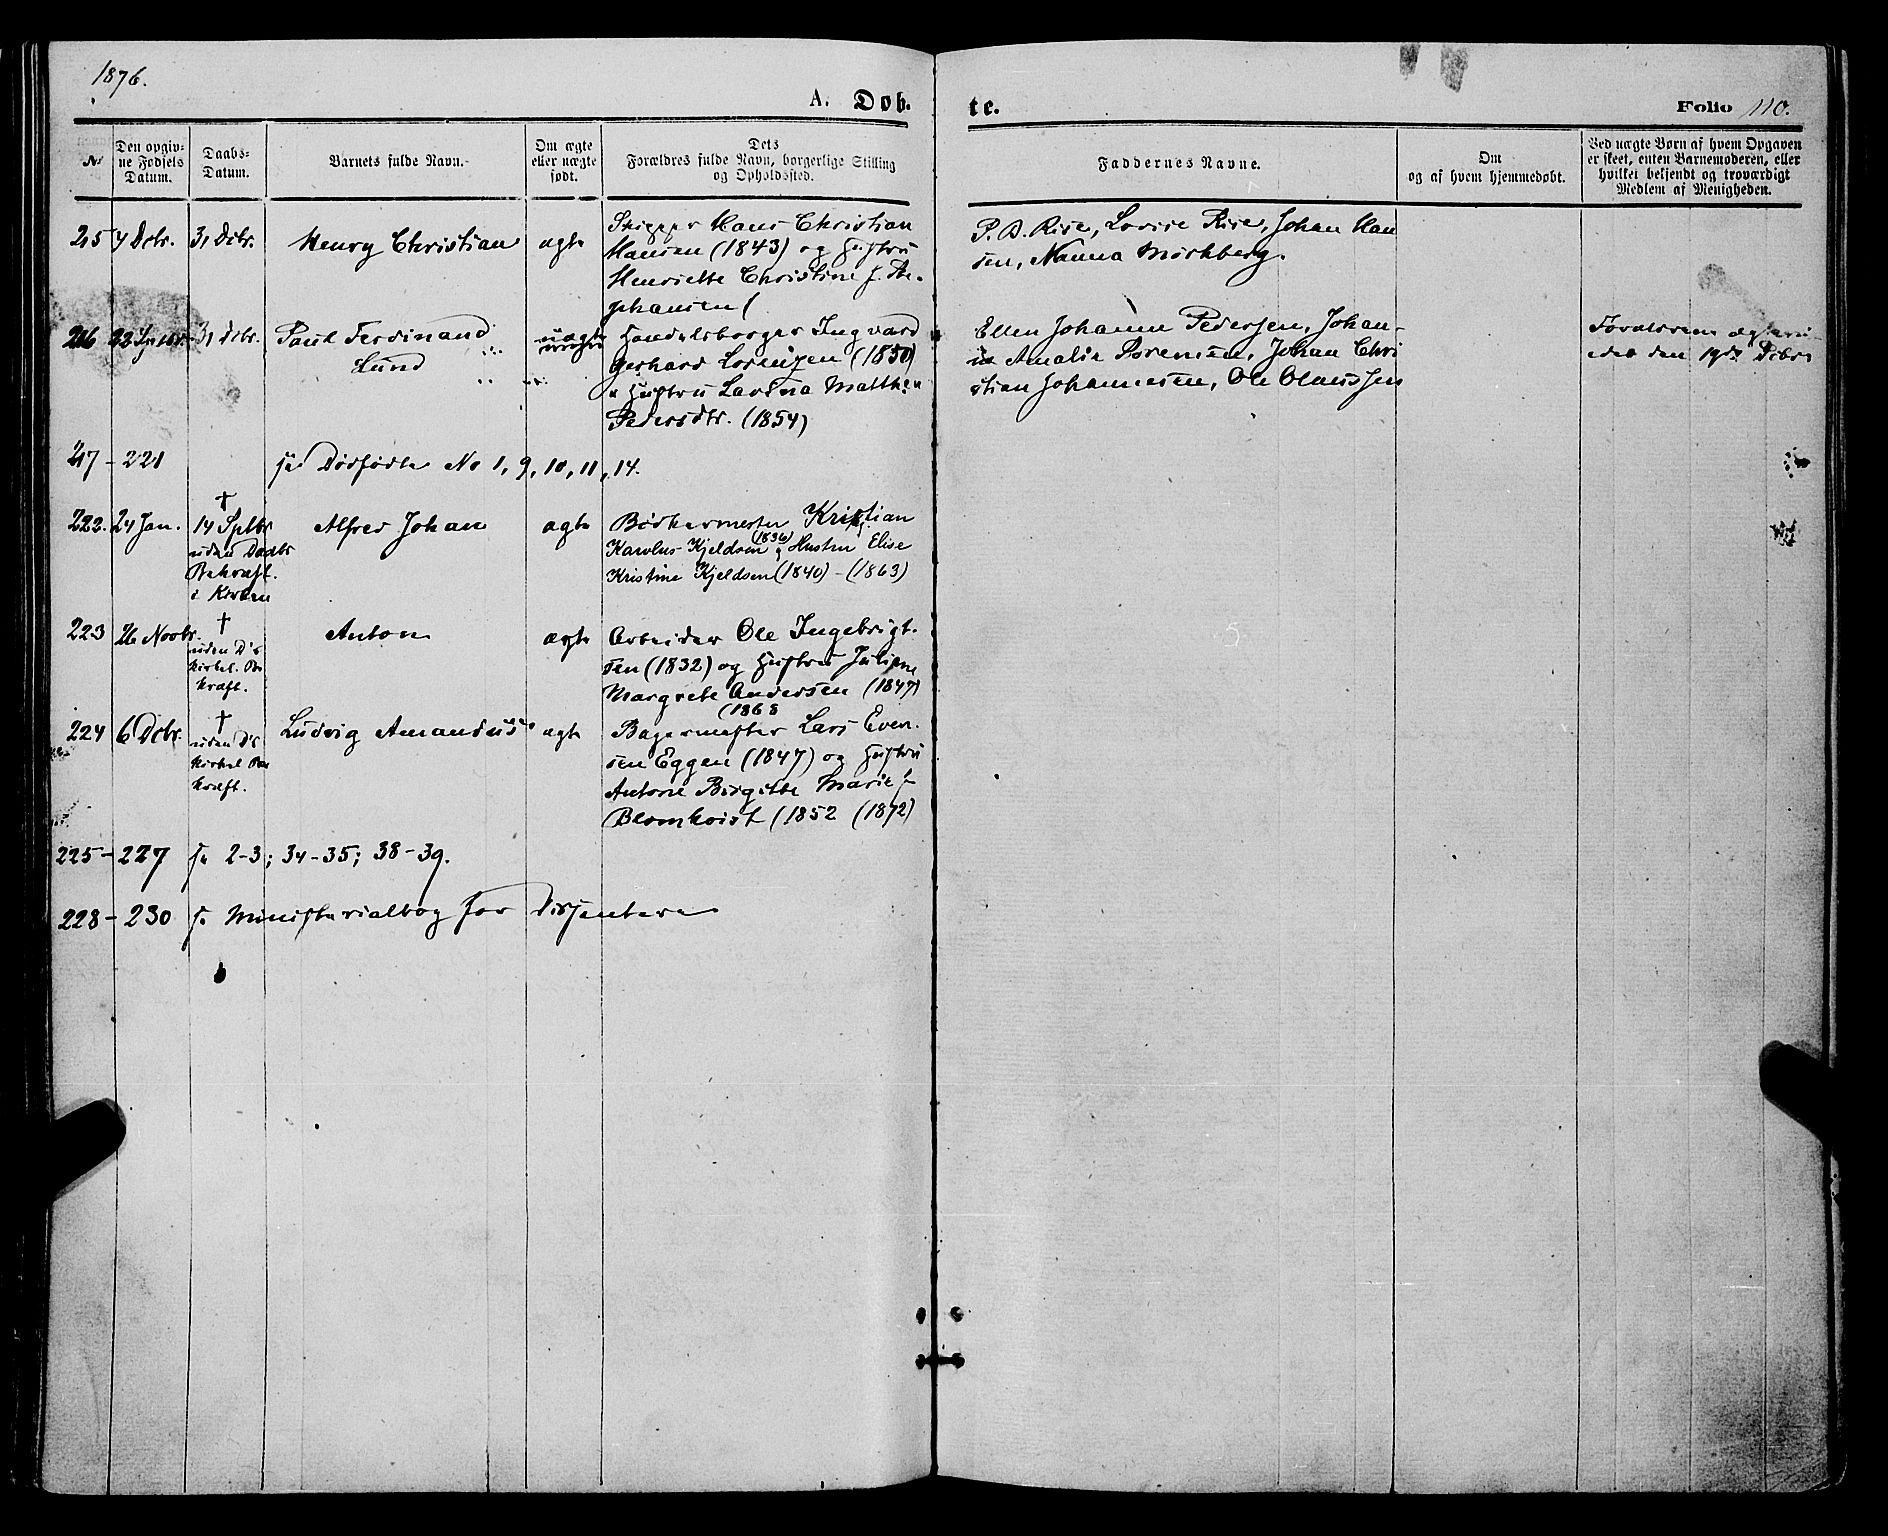 1876.
A. Døb.
te.
Folio 110.
No
Den opgiv-
ne Fødsels
Datum.
Daabs-
Datum.
Barnets fulde Navn.
Om ægte
eller uægte
født.
Dets
Forældres fulde Navn, borgerlige Stilling
og Opholdssted.
Faddernes Navne.
Om
og af hvem hjemmedøbt.
Ved uægte Børn af hvem Opgaven
er skeet, enten Barnemoderen, eller
hvilket bekjendt og troværdigt
Medlem af Menigheden.
215 4 Dcbr. 31 Dcbr. Henry Christian ægte
Skipper Hans Christian
Hansen (1843) og Hustru
Henriette Christine f. Ste-
phansen (
P. B. Rise, Lovise Rise, Johan Han
sen, Nanna Mørchberg.
216 23 Sptbr. 31 Dcbr. Paul Ferdinand
Lund
uægte
Handelsborger Ingvard
Gerhard Lorenzen (1850)
Hustru Lavina Matthea
Pedersdtr. (1854)
Ellen Johanne Pedersen, Johan-
ne Amalie Sørensen, Johan Chri
stian Johannesen, Ole Olaussen
Forældrene ægtevi
ede den 19de Dcbr
217 - 221 se Dødfødte No 1, 9, 10, 11, 14.
222. 24 Jan. † 14 Sptbr
uden Daabs
Bekræft.
i Kirken
Alfred Johan ægte
Bødkermester Kristian
Karolus Kjeldsen (1836) og Hustru Elise
Kristine Kjeldsen (1840) - (1863)
223 26 Novbr. †
uden D's
kirkel. Be
kræft.
Anton ægte
Arbeider Ole Ingebrigt-
sen (1832) og Hustru Juliane
Margrete Andersen (1847)
(1868
224 6 Dcbr. †
uden D's
kirkel Be
kræft.
Ludvig Amandus ægte
Bagermester Lars Even-
sen Eggen (1847) og Hustru
Antone Birgitte Marie f
Blomkvist (1852 (1872)
225 - 227 se 2-3; 34-35; 38-39.
228 - 230 se Ministerialbog for Dissentere